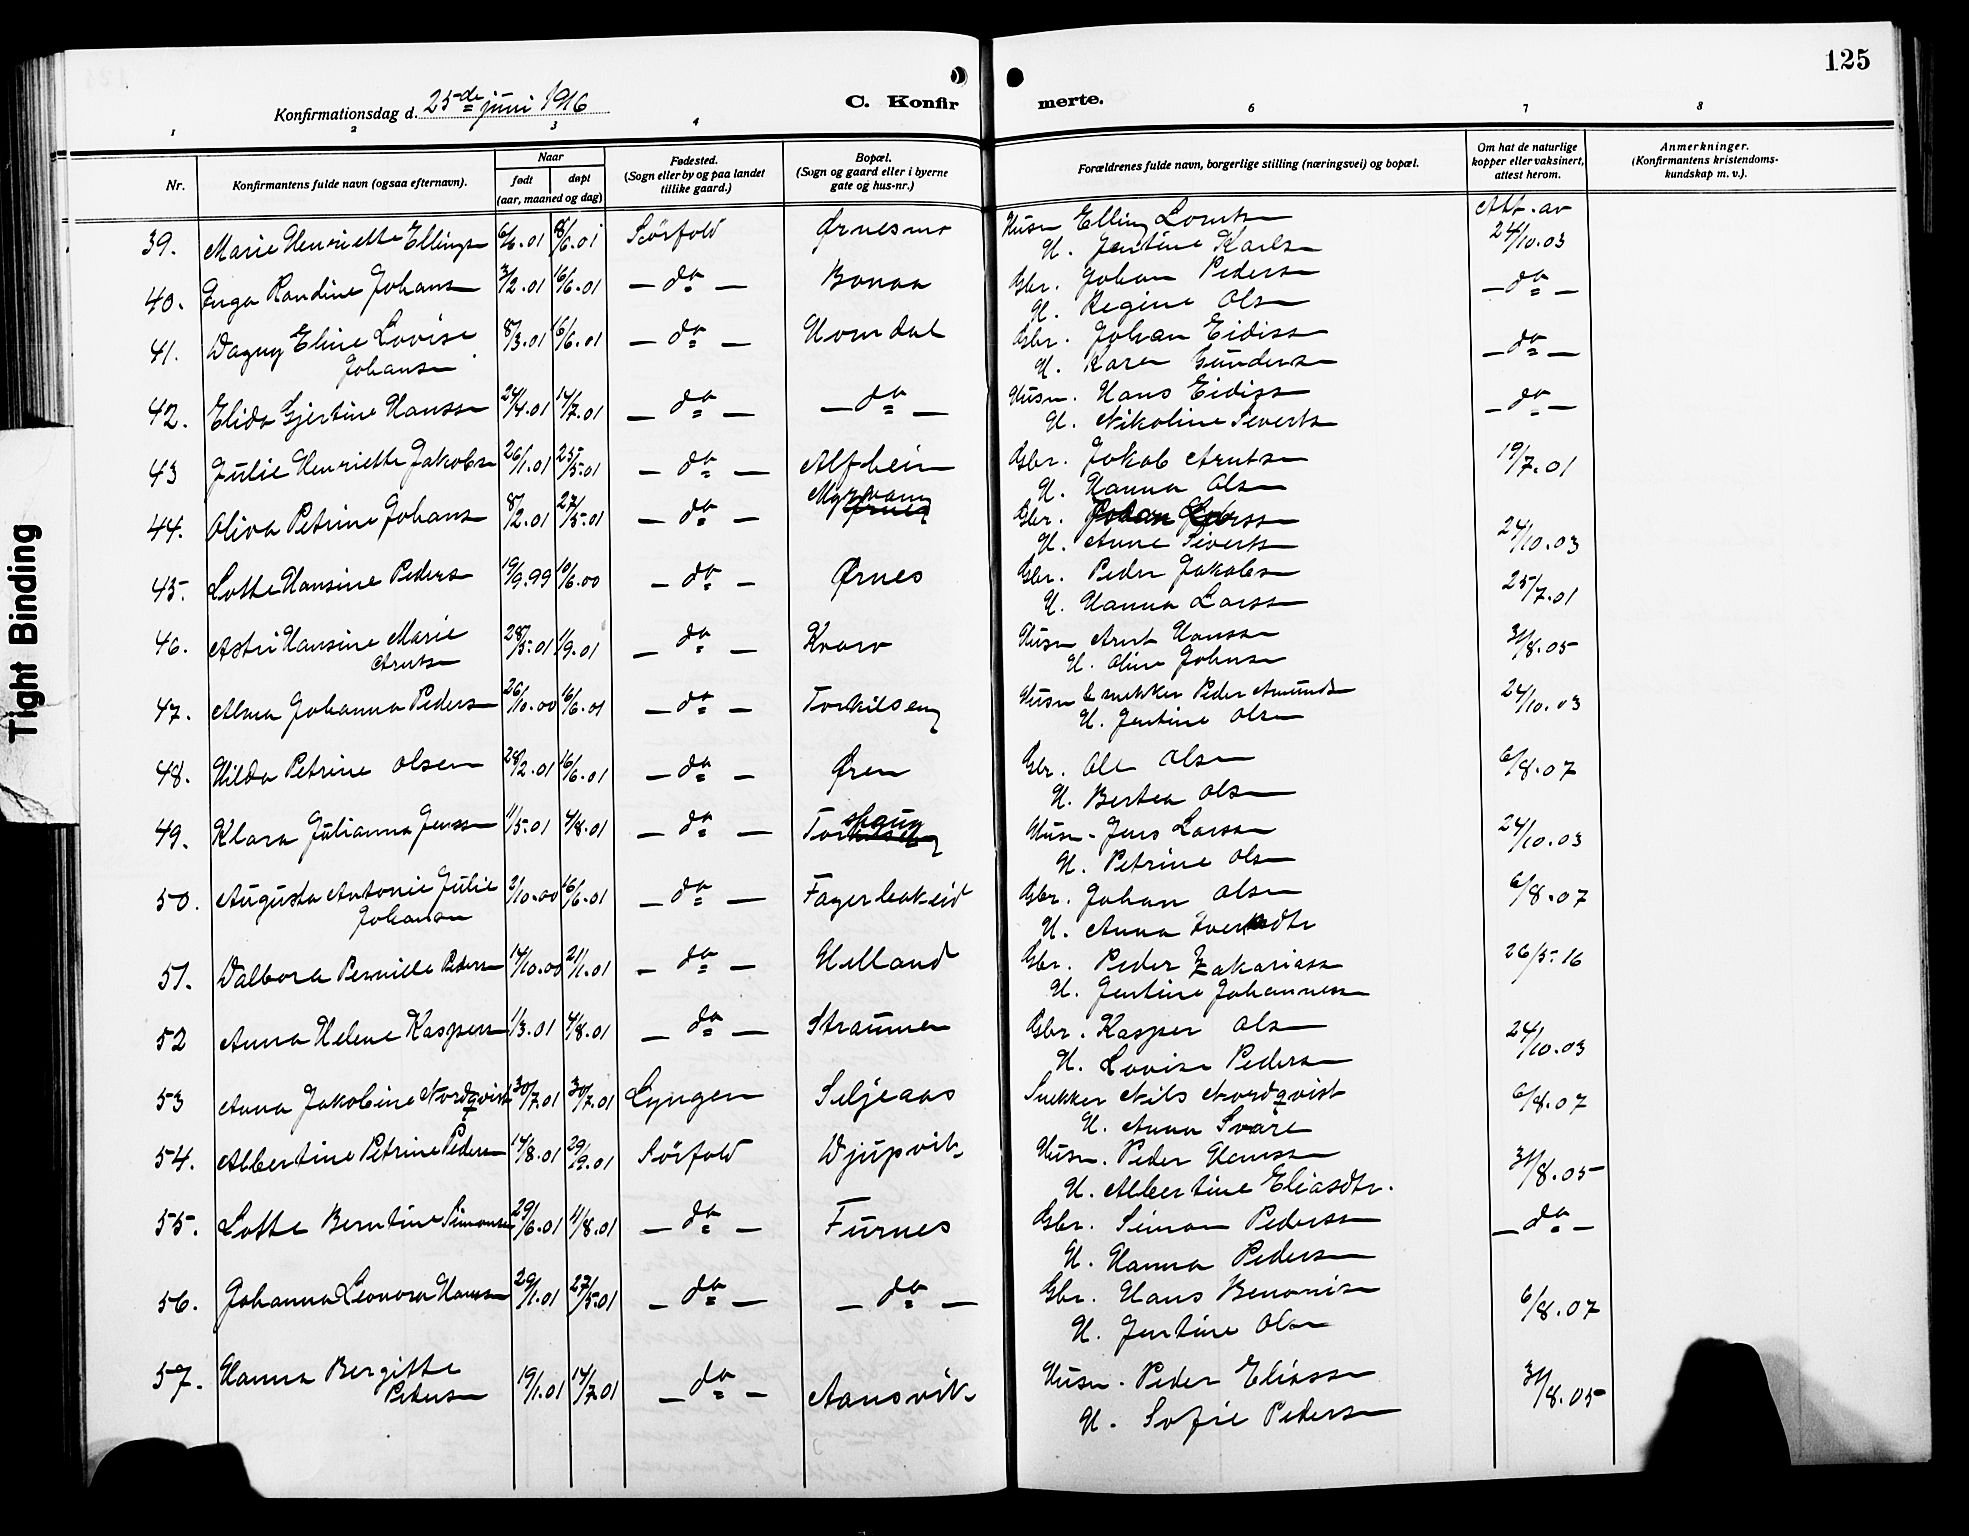 125
Konfirmationsdag d. 25de juni 1916
C. Konfirmerte.
1 2 3 4 6 7 8
Nr.
Konfirmantens fulde navn (ogsaa efternavn).
Naar
født døpt
(aar, maaned og dag)
Fødested.
(Sogn eller by og paa landet
tillike gaard.)
Bopæl.
(Sogn og gaard eller i byerne
gate og hus-nr.)
Forældrenes fulde navn, borgerlige stilling (næringsvei) og bopæl.
Om hat de naturlige
kopper eller vaksinert,
attest herom.
Anmerkninger.
(Konfirmantens kristendoms-
kundskap m. v.).
39. Marie Henriette Ellings 6/6.01 8/6.01 Sørfold Ørnesmo Husm Elling Lorents Att. av
H. Jentine Karls 24/10.03
40. Inga Randine Johans 3/2.01 16/6.01 — do — Bonaa Gbr. Johan Peders — do —
H. Regine Ols
41. Dagny Eline Lovise 8/3.01 16/6.01 — do — Horndal Gbr. Johan Eidiss — do —
Johans H. Karen Gunders
42. Elida Gjertine Hanss 24/4.01 14/7.01 — do — — do — Husm. Hans Eidiss — do —
H. Nikoline Siverts
43 Julie Henriette Jakobs 26/1.01 25/5.01 — do — Alfheim Gbr. Jakob Arnts 19/7.01
H. Hanna Ols
44. Oliva Petrine Johans 8/2.01 27/5.01 — do — Myrvang Gbr.
H. Anne Siverts 24/10.03
45. Lotte Hansine Peders 19/9.99 10/6.00 — do — Ørnes Gbr. Peder Jakobs
H. Hanna Larss 25/7.01
46. Astri Hansine Marie 28/5.01 1/9.01 — do — Kvarv Husm Arnt Hanss 31/8.05
Arnts H. Oline Johns
47. Alma Johanna Peders 26/10.00 16/6.01 — do — Torkilseng Husm & snekker Peder Amunds 24/10.03
H. Jentine Ols
48. Hilda Petrine Olsen 28/2.01 16/6.01 — do — Øren Gbr. Ole Ols 6/8.07
H. Bertea Ols
49. Klara Julianna Jenss 11/5.01 4/8.01 — do — Torshaug Husm. Jens Larss 24/10.03
H. Petrine Ols
50. Augusta Antonie Julie 2/10.00 16/6.01 — do — Fagerbakeid Gbr. Johan Ols 6/8.07
Johansn H. Anna
51. Valbora Pernille Peders 14/10.00 21/1.01 — do — Helland Gbr. Peder Zakariass 26/5.16
H. Jentine Johanness
52 Anna Helene Kaspers 1/3.01 4/8.01 — do — Straumen Gbr. Kasper Ols 24/10.03
H. Lovise Peders
53 Anna Jakobine Nordqvist 30/7.01 30/7.01 Lyngen Seljeaas Snekker Nils Nordqvist 6/8.07
H. Anna Svare
54. Albertine Petrine Peders 14/8.01 29/9.01 Sørfold Djupvik Husm. Peder Hanss 31/8.05
H. Albertine Eliasdtr.
55. Lotte Berntine Simons 29/6.01 11/8.01 — do — Furnes Gbr. Simon Peders — do —
H. Hanna Peders
56. Johanna Leonora Hanss 29/1.01 27/5.01 — do — — do — Gbr. Hans Benonis 6/8.07
H. Jentine Ols
57. Hanna Bergitte 19/1.01 14/7.01 — do — Aansvik Husm. Peder Eliass 31/8.05
Peders H. Sofie Peders
Tight Binding